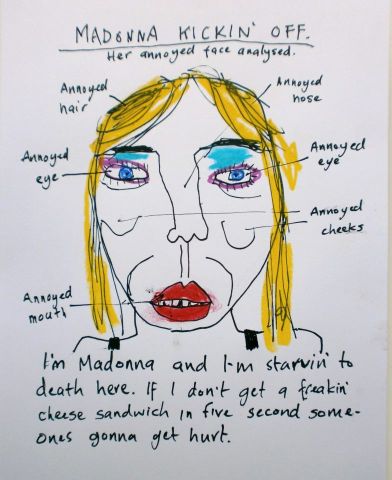 MADONNA KICKIN' OFF.
Her annoyed face analysed.
Annoyed hair
Annoyed nose
Annoyed eye
Annoyed eye
Annoyed cheeks
Annoyed mouth
I'm Madonna and I'm starvin' to
death here. If I don't get a freakin'
cheese sandwich in five second some-
ones gonna get hurt.